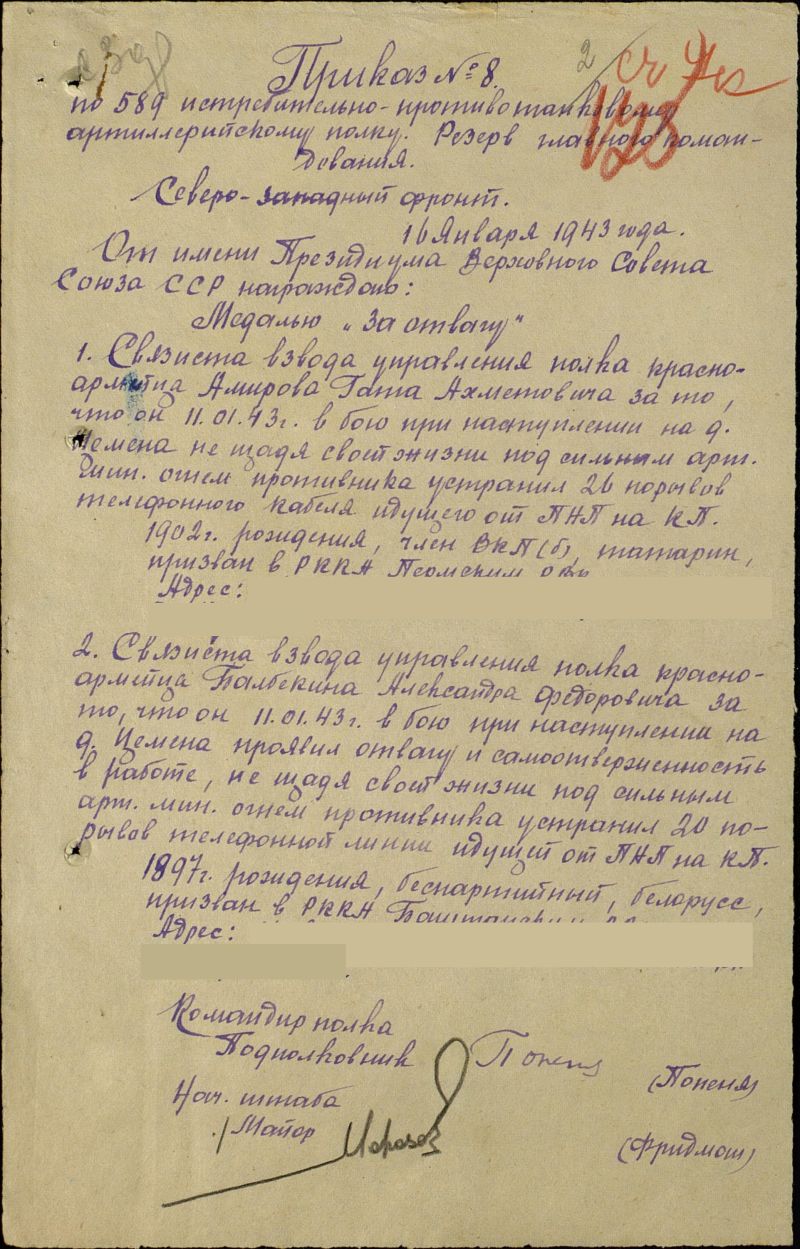 Приказ № 8
2
по 589 истребительно-противотанковому
артиллерийскому полку. Резерв главного коман-
дования.
Северо-западный фронт.
16 Января 1943 года.
От имени Президиума Верховного Совета
Союза ССР награждаю:
Медалью „За отвагу"
1. Связиста взвода управления полка красно-
армейца Амирова Гата Ахметовича за то,
что он 11.01.43г. в бою при наступлении на д.
Цемена не щадя своей жизни под сильным арт.
мин. огнем противника устранил 26 порывов
телефонного кабеля идущего от ПНП на КП.
1902г. рождения, член ВКП(б), татарин,
призван в РККА
Адрес:
2. Связиста взвода управления полка красно-
армейца Балбекина Александра Федоровича за
то, что он 11.01.43г. в бою при наступлении на
д. Цемена проявил отвагу и самоотверженность
в работе, не щадя своей жизни под сильным
арт. мин. огнем противника устранил 20 по-
рывов телефонной линии идущей от ПНП на КП.
1897г. рождения, беспартийный, белорусс,
призван в РККА
Адрес:
Командир полка
Подполковник Попеня
(Попеня)
Нач. штаба
Майор
(Фридман)